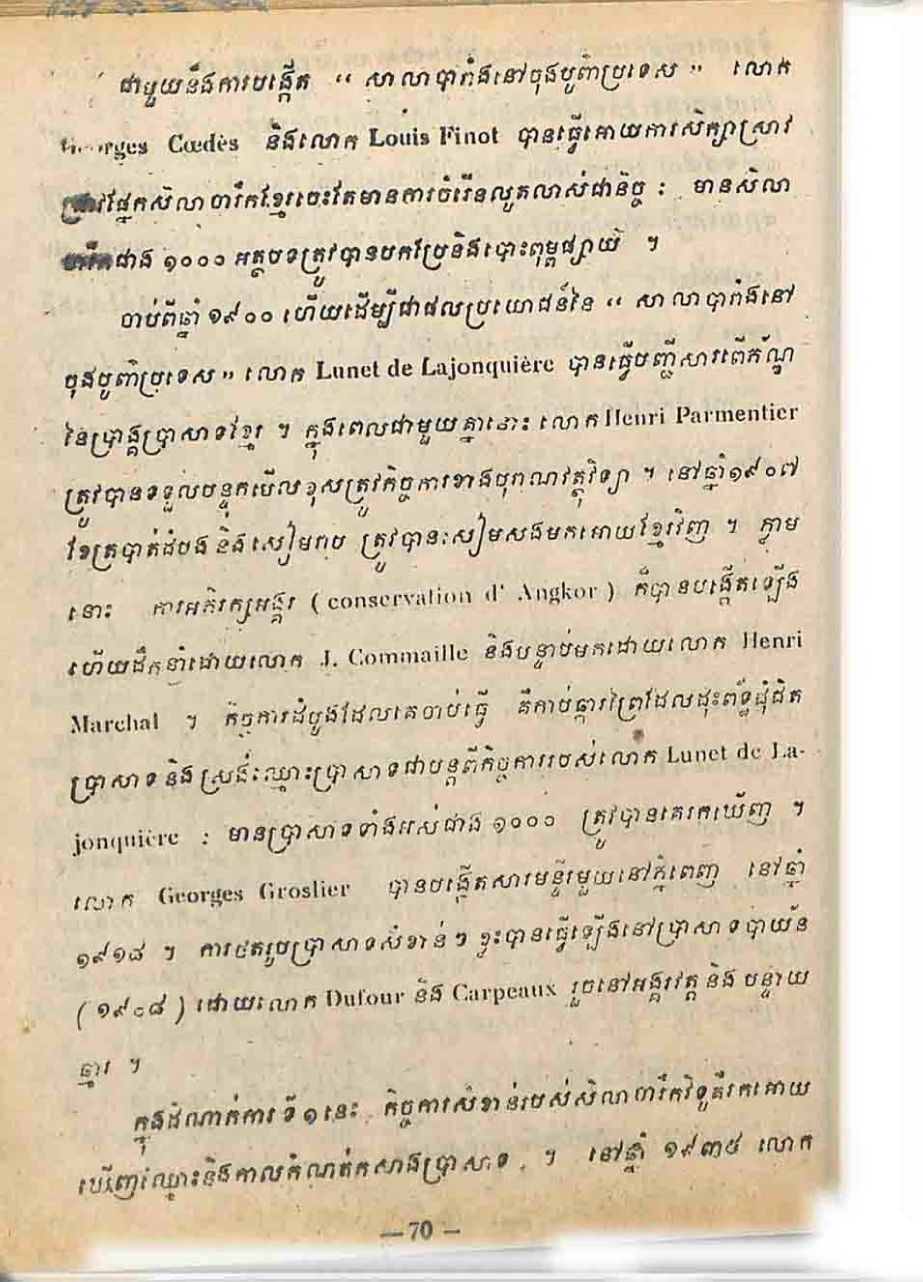 ជាមួយនឹងការបង្កើត “ សាលាបារាំងនៅចុងបូព៌ាប្រទេស ” លោក
Georges Cœdès និងលោក Louis Finot បានធ្វើអោយការសិក្សាស្រាវ
ជ្រាវផ្នែកសិលាចារឹកខ្មែរចេះតែមានការចំរើនលូតលាស់ជានិច្ច : មានសិលា
ចារឹកជាង ១០០០ អត្ថបទត្រូវបានបកប្រែនិងបោះពុម្ពផ្សាយ ។
ចាប់ពីឆ្នាំ ១៩០០ ហើយដើម្បីជាផលប្រយោជន៍នៃ “ សាលាបារាំងនៅ
ចុងបូព៌ាប្រទេស » លោក Lunet de Lajonquière បានធ្វើបញ្ជីសារពើភ័ណ្ឌ
នៃប្រាង្គប្រាសាទខ្មែរ ។ ក្នុងពេលជាមួយគ្នានោះ លោក Henri Parmentier
ត្រូវបានទទួលបន្ទុកមើលខុសត្រូវកិច្ចការខាងបុរាណវត្ថុវិទ្យា ។ នៅឆ្នាំ១៩០៧
ខែត្របាត់ដំបង និងសៀមរាប ត្រូវបានសៀមសងមកអោយខ្មែរវិញ ។ ភ្លាម
នោះ ការអភិរក្សអង្គរ ( conservation d' Angkor ) ក៏បានបង្កើតឡើង
ហើយដឹកនាំដោយលោក J. Commaille និងបន្ទាប់មកដោយលោក Henri
Marchal ។ កិច្ចការដំបូងដែលគេចាប់ធ្វើ គឺកាប់ឆ្ការព្រៃដែលដុះព័ទ្ធជុំជិត
ប្រាសាទនិងស្រង់ឈ្មោះប្រាសាទជាបន្តពីកិច្ចការរបស់លោក Lunet de La-
jonquière : មានប្រាសាទទាំងអស់ជាង ១០០០ ត្រូវបានគេរកឃើញ ។
លោក Georges Groslier បានបង្កើតសារមន្ទីរមួយនៅភ្នំពេញ នៅឆ្នាំ
១៩១៨ ។ ការថតរូបប្រាសាទសំខាន់ៗ ខ្លះបានធ្វើឡើងនៅប្រាសាទបាយ័ន
( ១៩០៨ ) ដោយលោក Dufour និង Carpeaux រួចនៅអង្គរវត្ត និង បន្ទាយ
ឆ្មារ ។
ក្នុងដំណាក់ការទី១នេះ កិច្ចការសំខាន់របស់សិលាចារឹកវិទូគឺរកអោយ
ឃើញឈ្មោះនិងកាលកំណត់កសាងប្រាសាទ ។ នៅឆ្នាំ ១៩៣៥ លោក
— 70 —